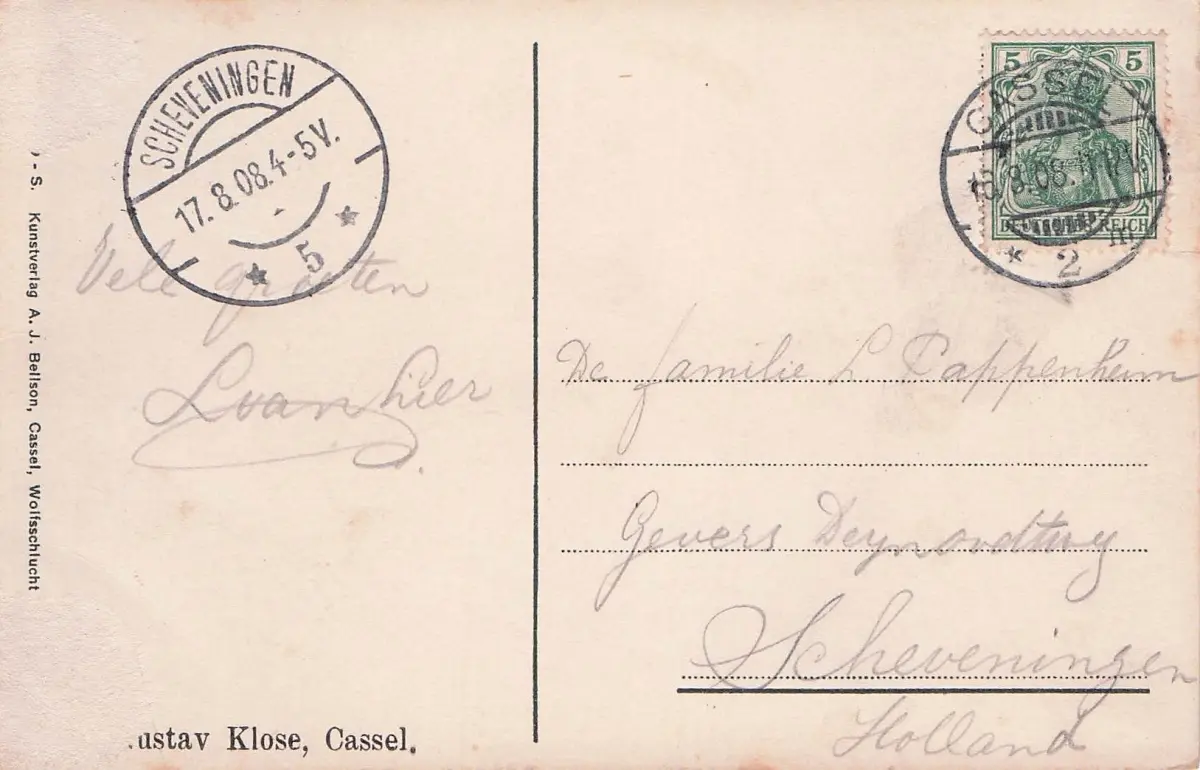 ) - S. Kunstverlag A. J. Bellson, Cassel, Wolfsschlucht
SCHEVENINGEN
17.8.08.4-5V.
5
Vele groeten
L van Lier
.ustav Klose, Cassel.
5 5
CASSEL
.8.08.11-12V.
2
REICH
De familie L Pappenheim
Gevers Deynoodtweg
Scheveningen
Holland